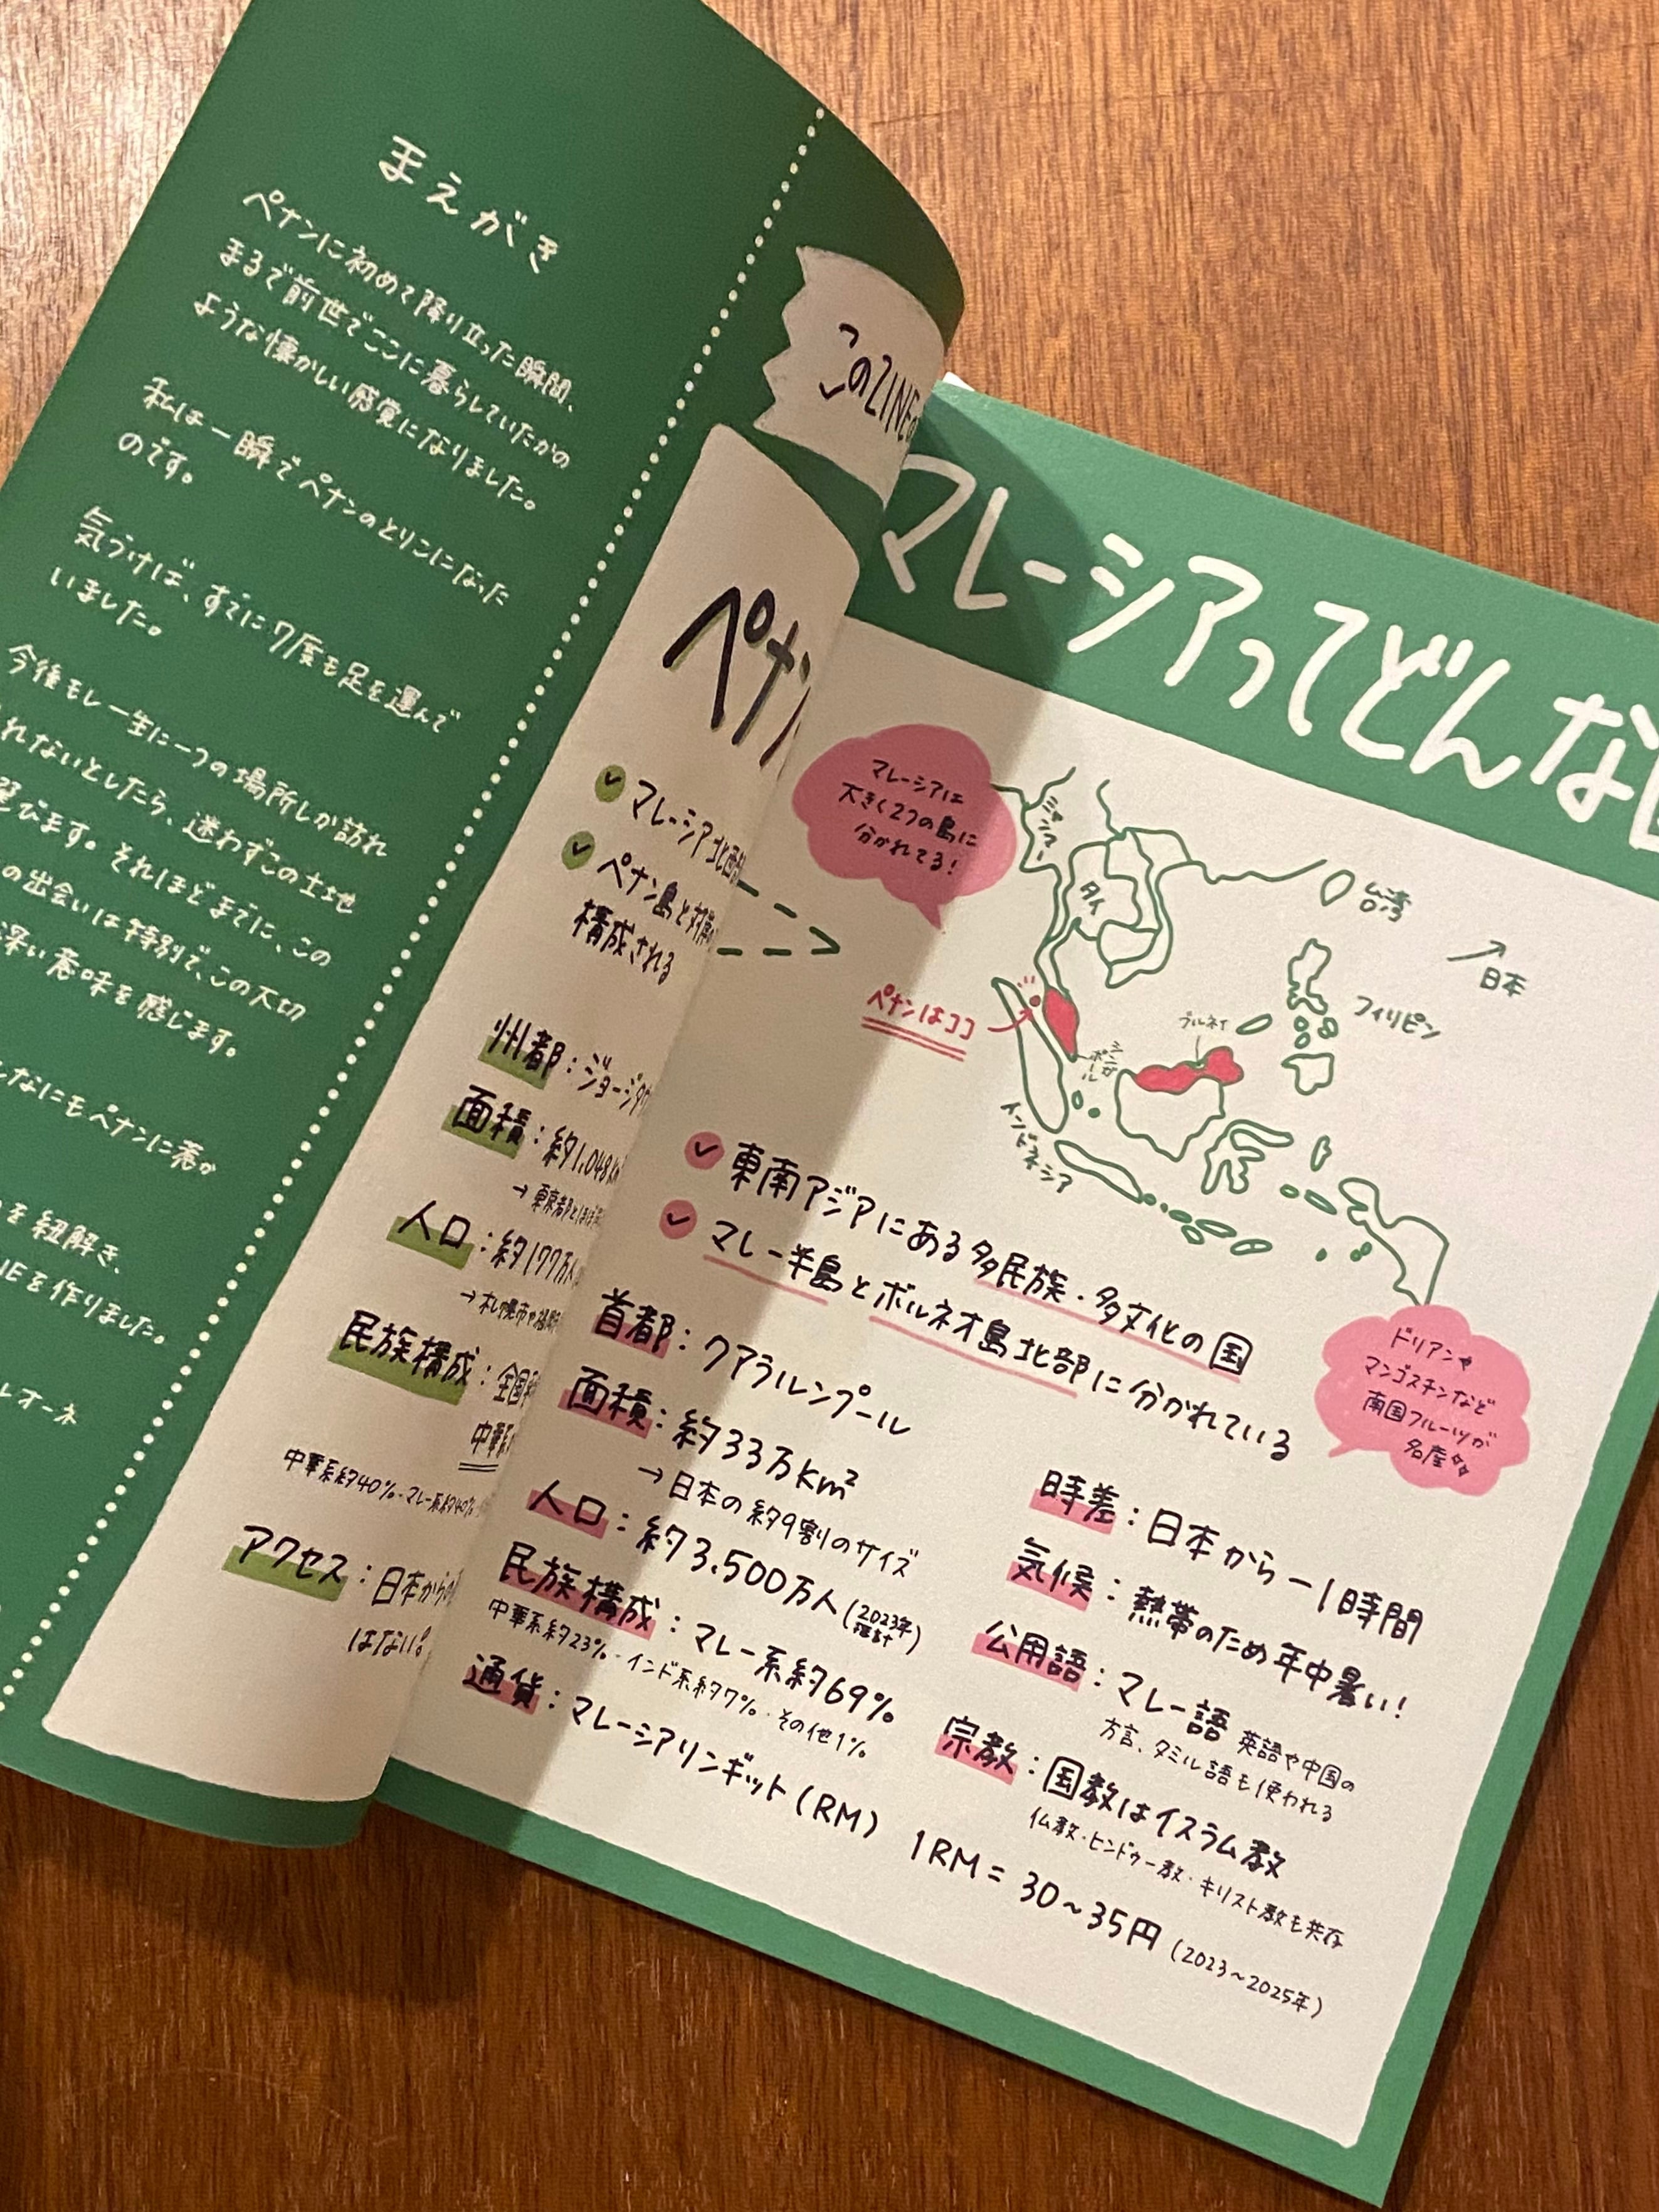 まえがき
ペナンに初めて降り立った瞬間、
まるで前世でここに暮らしていたかの
ような懐かしい感覚になりました。
私は一瞬でペナンのとりこになった
のです。
気づけば、すでに7度も足を運んで
いました。
今後もし一生に一つの場所しか訪れ
れないとしたら、迷わずこの土地
びます。それほどまでに、この
の出会いは特別で、この大切
深い意味を感じます。
なにもペナンに惹か
を紐解き、
を作りました。
レオーネ
このZINE
ペナン
マレーシア北西部
ペナン島と対岸
構成される
州都：ジョージタウ
面積：約1,048k
→東京都とほぼ
人口：約177万人
→札幌市や福岡
民族構成：全国
中華系
中華系約40%・マレー系約40%
アクセス：日本からの
はない！
マレーシアってどんな
マレーシアは
大きく2つの島に
分かれてる！
ミャンマー
タイ
台湾
日本
フィリピン
ペナンはココ
ブルネイ
シンガポール
インドネシア
東南アジアにある多民族・多文化の国
マレー半島とボルネオ島北部に分かれている
ドリアンや
マンゴスチンなど
南国フルーツが
名産
首都：クアラルンプール
面積：約33万km²
→日本の約9割のサイズ
人口：約3.500万人（2023年推計）
民族構成：マレー系約69%
中華系約23%・インド系約7%・その他1%
通貨：マレーシアリンギット（RM） 1RM＝30〜35円（2023〜2025年）
時差：日本から−1時間
気候：熱帯のため年中暑い！
公用語：マレー語 英語や中国の
方言、タミル語も使われる
宗教：国教はイスラム教
仏教・ヒンドゥー教・キリスト教も共存